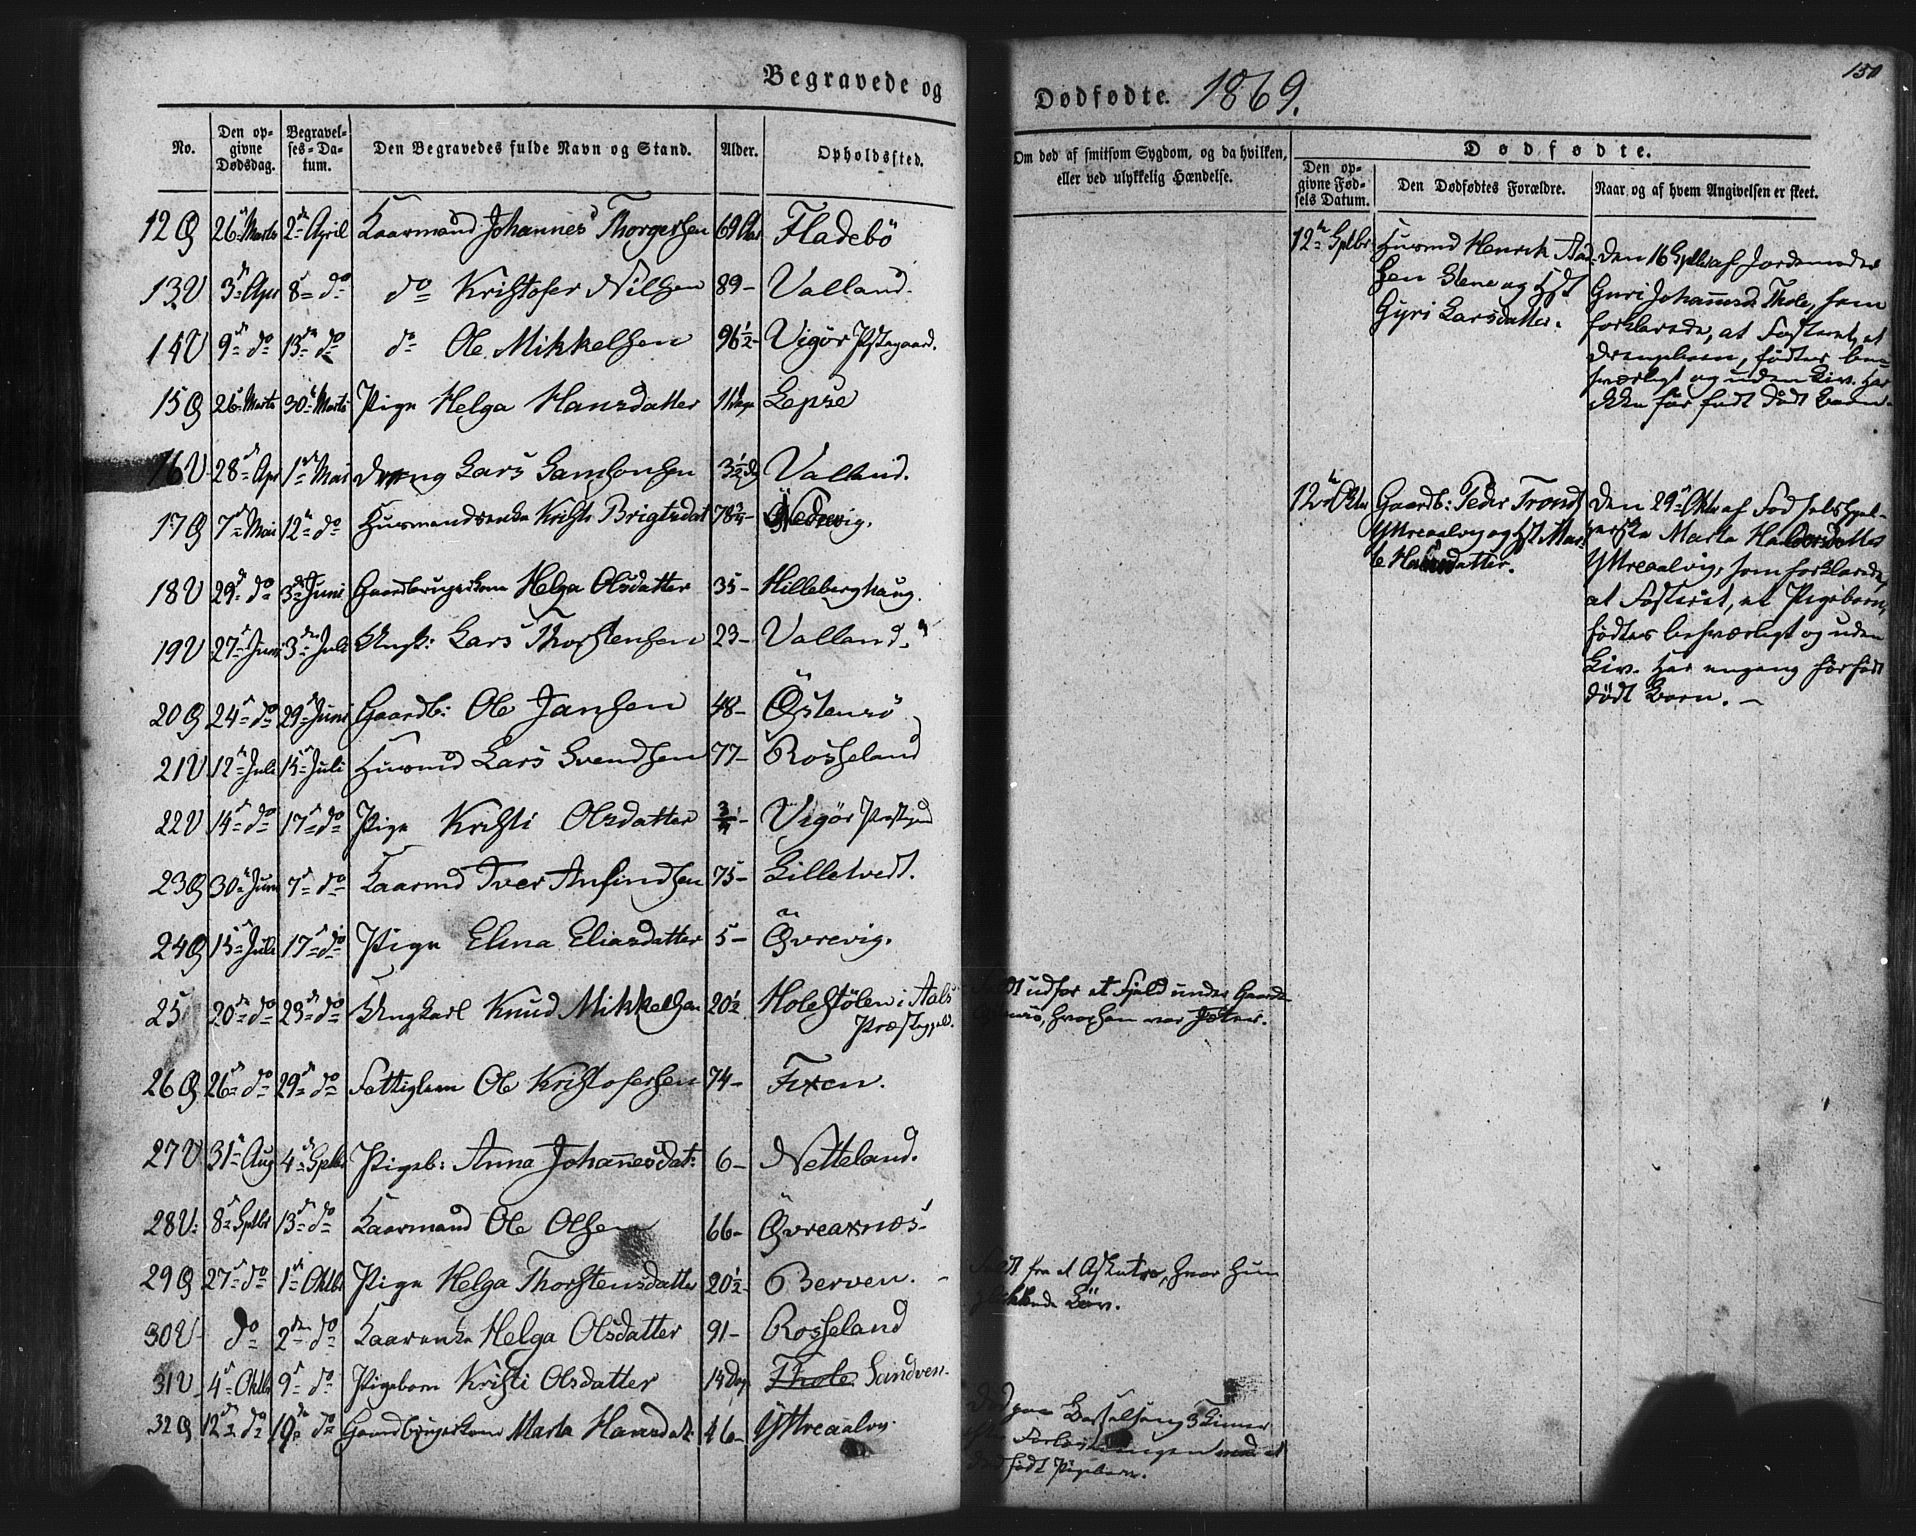 Begravede og Dødfødte. 1869.
150
No. | Den opgivne Dødsdag. | Begravelses-Datum. | Den Begravedes fulde Navn og Stand. | Alder. | Opholdssted. | Om død af smitsom Sygdom, og da hvilken, eller ved ulykkelig Hændelse.
Dødfødte.
Den opgivne Fødsels Datum. | Den Dødfødtes Forældre. | Naar og af hvem Angivelsen er skeet.
12 Ø | 26de Marts | 2den April | Kaarmand Johannes Thorgersen | 69 Aar | Fladebö
13 V | 3de Apr | 8de do | do Kristofer Nilssen | 89 - | Valland.
14 V | 9de do | 13de do | do Ole Mikkelsen | 96 1/2 - | Vigör Pstegaard.
15 Ø | 26de Marts | 30te Marts | Pige Helga Hansdatter | 11 Dage | Lepsø
16 V | 28de Apr | 1ste Mai | Dreng Lars Samsonsen | 3 1/2 Dg | Valland.
17 Ø | 7de Mai | 12te do | Huusmandsenke Kristi Brigtsdat | 78 1/4 - | Nedrevig.
18 V | 29de do | 3de Juni | Gaardbrugerkone Helga Olsdatter | 35 - | Hilleberghaug.
19 V | 27de Juni | 3die Juli | Ungk: Lars Thorstensen | 23 - | Valland.
20 Ø | 24de do | 29de Juni | Gaardb: Ole Jansen | 48 - | Östensö
21 V | 12te Juli | 15de Juli | Husmd Lars Svendsen | 77 - | Rosseland
22 V | 14de do | 17de do | Pige Kristi Olsdatter | 3/4 - | Vigör Præstgrd
23 Ø | 30te Juni | 7de do | Kaarmd Iver Anfindsen | 75 - | Lilletvedt.
24 Ø | 15de Juli | 17de do | Pige Elena Eliasdatter | 5 - | Øvrevig.
25 | 20de do | 23de do | Ungkarl Knud Mikkelsen | 20 1/2 | Holestölen i Aals Præstegjeld. | udfor et Fjeld under Gaarden Østensö, hvor han var Gjæter.
26 Ø | 26de do | 29de do | Fattiglem Ole Kristofersen | 74 - | Fixen.
27 V | 31te Aug | 4de Sptbr | Pigeb: Anna Johannesdat: | 6 - | Netteland.
28 V: | 8de Sptbr | 13de do | Kaarmand Ole Olsen | 66 - | Øvreaxnæs
29 Ø | 27de do | 1ste Oktbr | Pige Helga Thorstensdatter | 20 1/2 - | Berven. - | fra et Asketræ, hvor hun sankede Löv.
30 V | do | 2den do | Kaarenke Helga Olsdatter | 91 - | Rosseland
31 V | 4de Oktbr | 9de do | Pigebarn Kristi Olsdatter | 14 Dag | Thole Sandven.
32 Ø | 12te do | 19de do | Gaardbrugerkone Marta Hansdat: | 46 - | Yttreaalvig | Död paa Barselseng 3 Timer efter Forlösningen med et dödfödt Pigebarn.
12te Sptbr | Husmd Henrik Aadsen Stene og Hst Gyri Larsdatter. | Den 16 Sptbr af Jordemoder Guri Johannesd. Thole, som forklarede, at Fosteret, et Drengebarn, födtes besværligt og uden Liv. Har ikke för födt dödt Barn.
12te Oktbr | Gaardb: Peder Tronds. Yttreaalvig og Hst Marte Hansdatter. | Den 29de Oktbr af Födselshjelperske Marta Haldorsdatter Yttreaalvig, som forklarede, at Fosteret, et Pigebarn, födtes besværligt og uden Liv. Har engang för födt dödt Barn. -